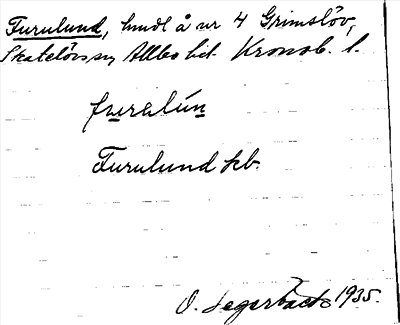 Furulund, hmdl å nr 4 Grimslöv,
Skatelövs sn Allbo hd. Kronob. l.
furulún
Furulund kb.
O. Segerbäck 1935.